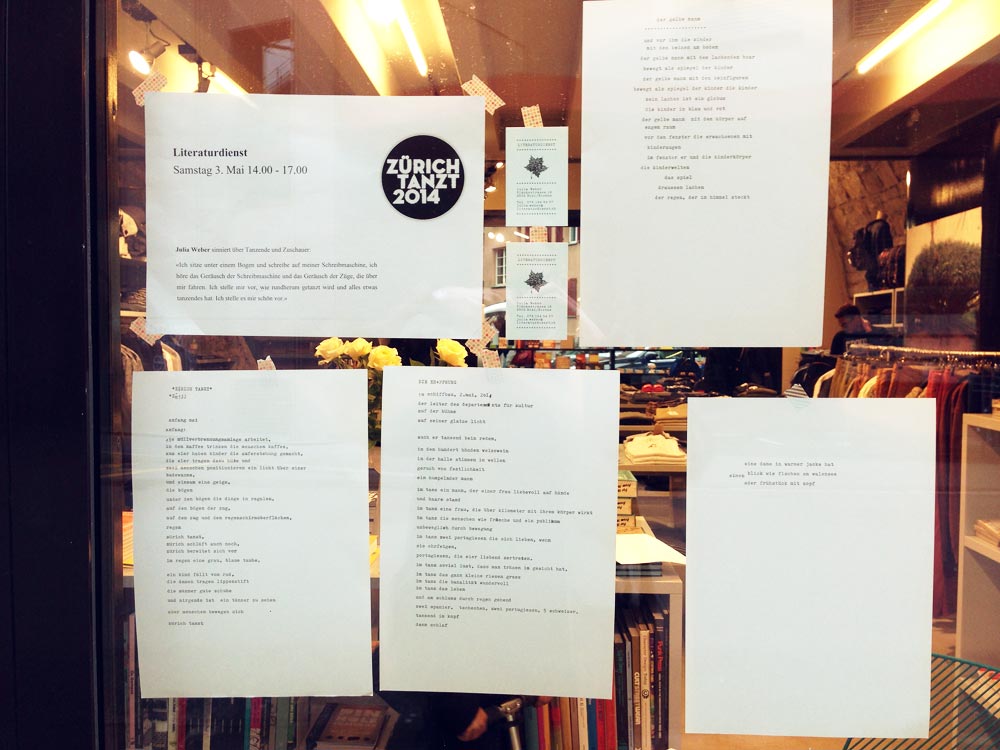 Literaturdienst
Samstag 3. Mai 14.00 - 17.00
ZÜRICH
TANZT
2014
Julia Weber sinniert über Tanzende und Zuschauer:
«Ich sitze unter einem Bogen und schreibe auf meiner Schreibmaschine, ich
höre das Geräusch der Schreibmaschine und das Geräusch der Züge, die über
mir fahren. Ich stelle mir vor, wie rundherum getanzt wird und alles etwas
tanzendes hat. Ich stelle es mir schön vor.»
LITERATURDIENST
Julia Weber
LITERATURDIENST
Julia Weber
der gelbe mann
und vor ihm die kinder
mit den beinen am boden
der gelbe mann mit dem lachenden haar
bewegt als spiegel der kinder
der gelbe mann mit den beinfiguren
bewegt als spiegel der kinder die kinder
sein lachen ist ein globus
die kinder in blau und rot
der gelbe mann mit den körper auf
engem raum
vor den fenster die erwachsenen mit
kinderaugen
im fenster er und die kinderkörper
die kinderwelten
das spiel
draussen lachen
der regen, der im himmel steckt
"ZÜRICH TANZT"
anfang mai
anfang:
die müllverbrennungsanlage arbeitet,
in den kaffee trinken die menschen kaffee,
die eier tragen dazu bike und
zwei menschen positionieren ein licht über einer
badewanne,
und niesum eine geige,
die bögen
unter den bögen die dinge in regalen,
auf den bögen der zug,
auf dem zug und den regenschirmoberflächen,
regen
zürich tanzt,
zürich schläft auch noch,
zürich bereitet sich vor
im regen eine grau, blaue taube,
ein kind fällt vom rad,
die damen tragen lippenstift
die männer gute schuhe
und nirgends ist ein tänzer zu sehen
aber menschen bewegen sich
zürich tanzt
DIE ERÖFFNUNG
im schiffbau, 2.mai, 2014
der leiter des departements für kultur
auf der bühne
auf seiner glatze licht
auch er tanzend beim reden,
in den hundert händen weisswein
in der halle stimmen in wellen
geruch von festlichkeit
ein humpelnder mann
im tanz ein mann, der einer frau liebevoll auf hände
und haare stand
im tanz eine frau, die über kilometer mit ihrem körper wirkt
im tanz die menschen wie frösche und ein publikum
unbeweglich durch bewegung
im tanz zwei portugiesen die sich lieben, wenn
sie ohrfeigen,
portugiesen, die eier liebend zertreten.
im tanz soviel lust, dass man tränen im gesicht hat,
im tanz das ganz kleine riesen gross
im tanz die banalität wundervoll
im tanz das leben
und am schluss durch regen gehend
zwei spanier, tschechen, zwei portugiesen, 5 schweizer,
tanzend im kopf
dann schlaf
eine dame in warmer jacke hat
einen blick wie fischen am walensee
oder frühstück mit kopf